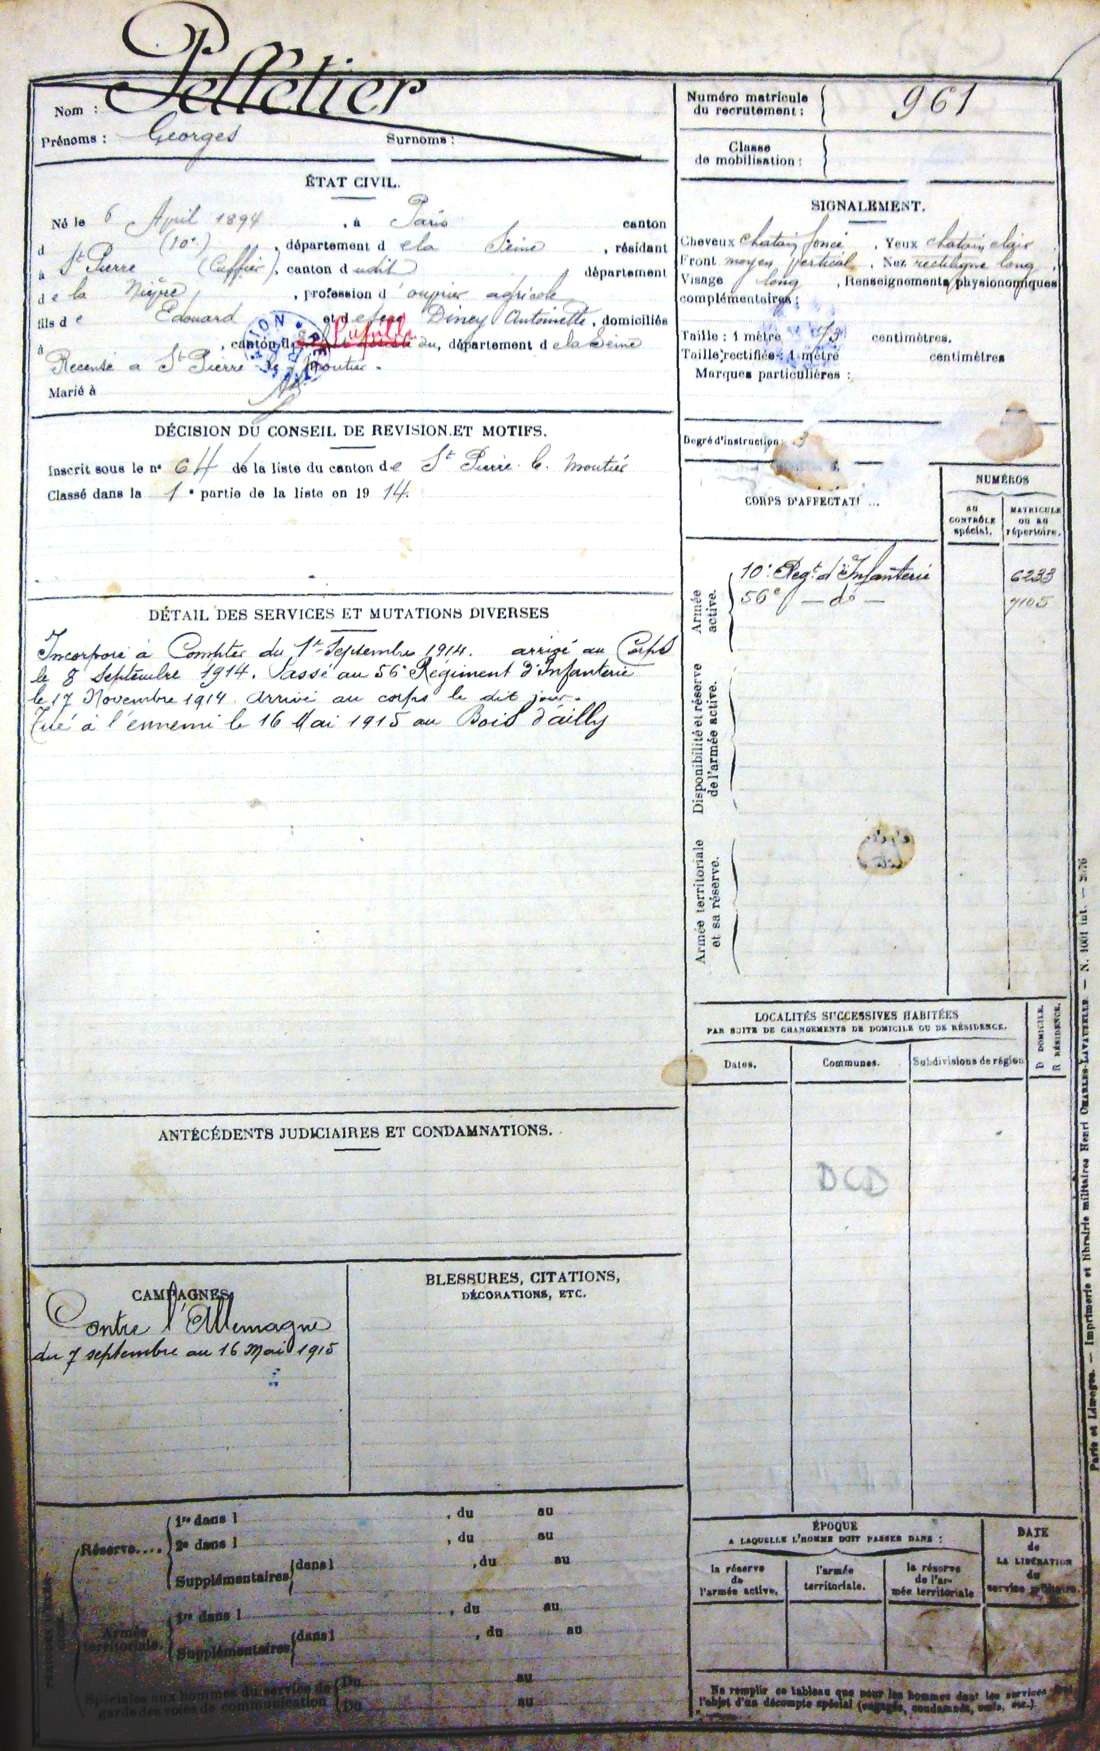 Nom : Pelletier
Prénoms : Georges Surnoms :
Numéro matricule
du recrutement : 961
Classe
de mobilisation :
ÉTAT CIVIL.
Né le 6 April 1894, à Paris canton
d (10e), département de la Seine, résidant
à St Pierre (Cuffier), canton dudit département
de la Nièvre, profession d'ouvrier agricole
fils de Edouard et de feue Diney Antoinette, domiciliés
à , canton du, département de la Seine
Pupille
Recensé à St Pierre le Moutier.
Marié à
SIGNALEMENT.
Cheveux chatain foncé, Yeux chatain clair
Front moyen vertical, Nez rectiligne long,
Visage long, Renseignements physionomiques
complémentaires :
Taille : 1 mètre 73 centimètres.
Taille rectifiée : 1 mètre centimètres
Marques particulières :
Degré d'instruction : 3
DÉCISION DU CONSEIL DE REVISION ET MOTIFS.
Inscrit sous le n° 64 de la liste du canton de St Pierre le Moutier
Classé dans la 1e partie de la liste en 1914.
CORPS D'AFFECTATI
NUMÉROS
AU
CONTRÔLE
spécial.
MATRICULE
ou au
répertoire.
Armée
active.
10e Regt d'Infanterie 6233
56e — do — 7105
Disponibilité et réserve
de l'armée active.
Armée territoriale
et sa réserve.
DÉTAIL DES SERVICES ET MUTATIONS DIVERSES
Incorporé à Compter du 1er Septembre 1914. arrivé au Corps
le 8 septembre 1914. Passé au 56e Régiment d'Infanterie
le 17 Novembre 1914. Arrivé au corps le dit jour.
Tué à l'ennemi le 16 Mai 1915 au Bois d'ailly
LOCALITÉS SUCCESSIVES HABITÉES
PAR SUITE DE CHANGEMENTS DE DOMICILE OU DE RÉSIDENCE.
D DOMICILE.
R RÉSIDENCE.
Dates. Communes. Subdivisions de région
DCD
ANTÉCÉDENTS JUDICIAIRES ET CONDAMNATIONS.
CAMPAGNES
Contre l'Allemagne
du 7 septembre au 16 Mai 1915
BLESSURES, CITATIONS,
DÉCORATIONS, ETC.
Réserve....
1re dans l , du au
2e dans l , du au
Supplémentaires dans l , du au
Armée
territoriale.
1re dans l , du au
Supplémentaires dans l , du au
Spéciales aux hommes du service de
garde des voies de communication
Du au
Du au
ÉPOQUE
A LAQUELLE L'HOMME DOIT PASSER DANS :
la réserve
de
l'armée active.
l'armée
territoriale.
la réserve
de l'ar-
mée territoriale
DATE
de
LA LIBÉRATION
du
service militaire.
Ne remplir ce tableau que pour les hommes dont les services font
l'objet d'un décompte spécial (engagés, condamnés, omis, etc.)
Paris et Limoges. — Imprimerie et librairie militaires Henri CHARLES-LAVAUZELLE. — N. 1001 int. — 2876